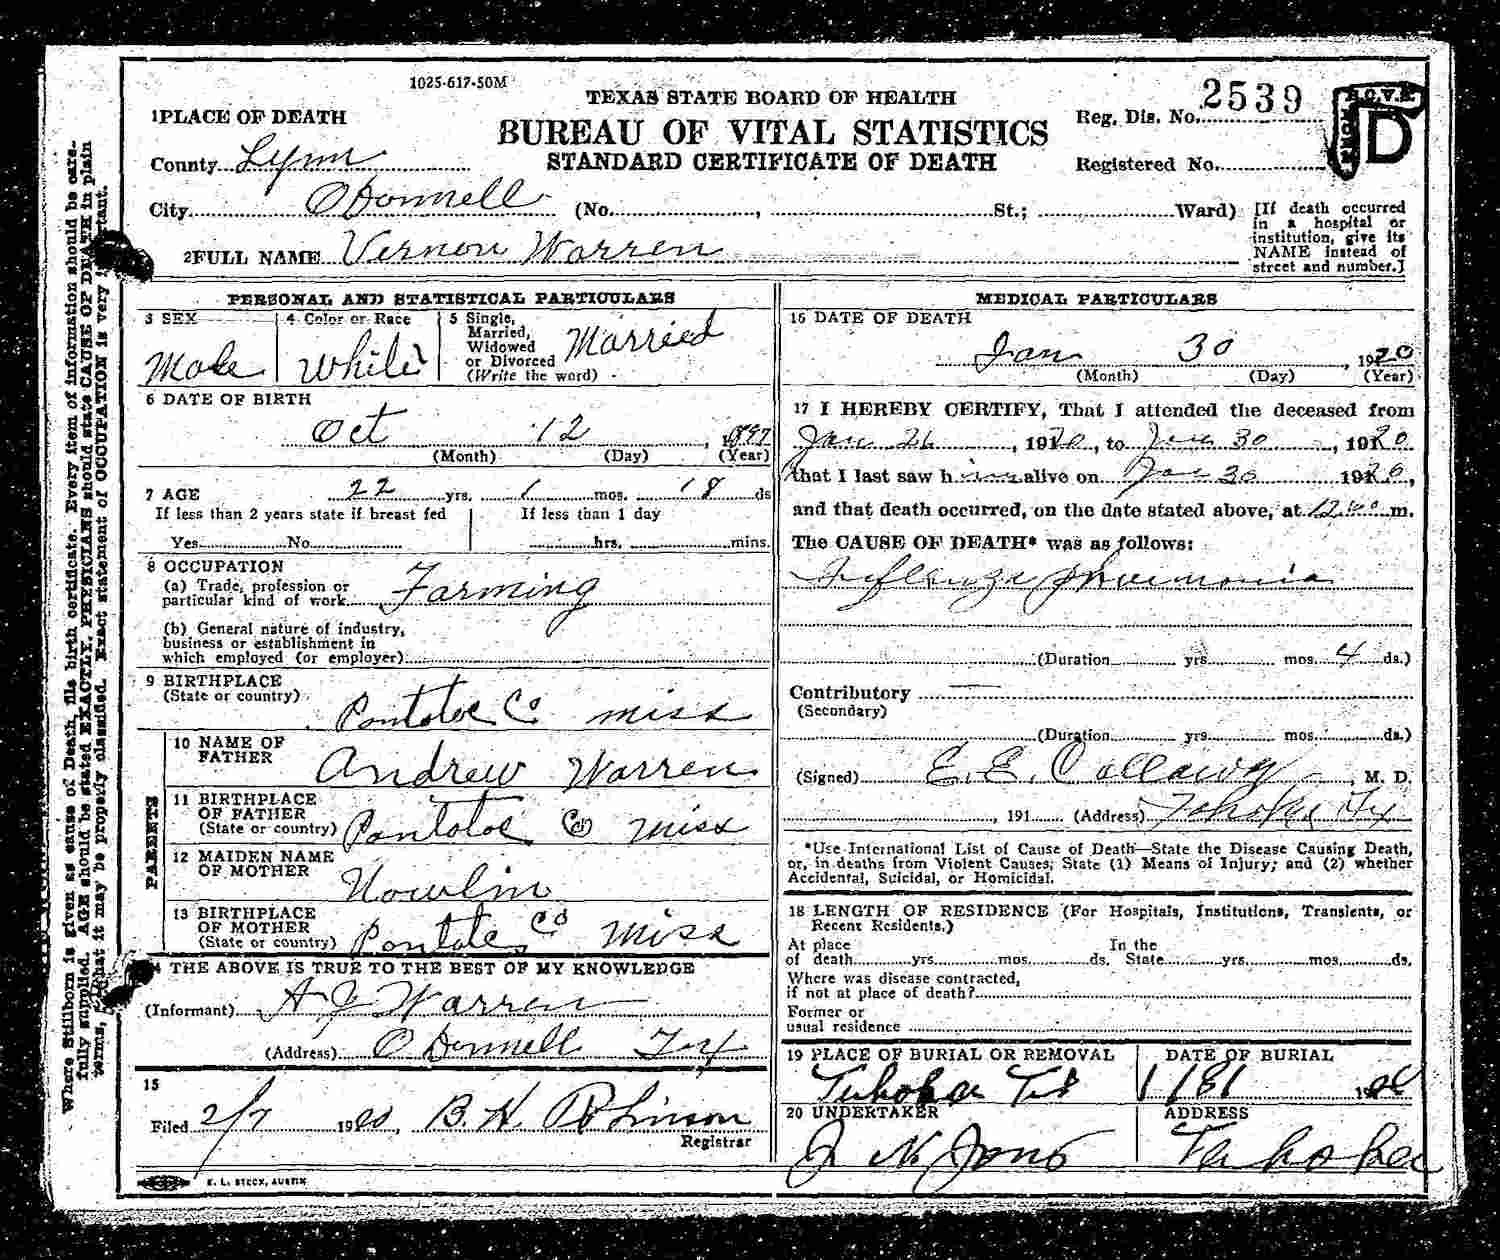 1025-617-50M
TEXAS STATE BOARD OF HEALTH
BUREAU OF VITAL STATISTICS
STANDARD CERTIFICATE OF DEATH
Reg. Dis. No. 2539
Registered No.
B.C.V.S.
WORK
D
1 PLACE OF DEATH
County Lynn
City O'Donnell (No. , St.; Ward)
[If death occurred in a hospital or institution, give its NAME instead of street and number.]
2 FULL NAME Vernon Warren
PERSONAL AND STATISTICAL PARTICULARS
3 SEX
Male
4 Color or Race
White
5 Single, Married, Widowed or Divorced (Write the word)
Married
6 DATE OF BIRTH
Oct 12, 1897
(Month) (Day) (Year)
7 AGE 22 yrs. 1 mos. 18 ds
If less than 2 years state if breast fed
Yes No
If less than 1 day
hrs. mins.
8 OCCUPATION
(a) Trade, profession or particular kind of work Farming
(b) General nature of industry, business or establishment in which employed (or employer)
9 BIRTHPLACE
(State or country) Pontotoc Co Miss
PARENTS
10 NAME OF FATHER Andrew Warren
11 BIRTHPLACE OF FATHER
(State or country) Pontotoc Co Miss
12 MAIDEN NAME OF MOTHER Nowlin
13 BIRTHPLACE OF MOTHER
(State or country) Pontotoc Co Miss
THE ABOVE IS TRUE TO THE BEST OF MY KNOWLEDGE
(Informant) A J Warren
(Address) O'Donnell Tex
15
Filed 2/7 1920, B. H. Robinson
Registrar
E. L. STECK, AUSTIN
MEDICAL PARTICULARS
16 DATE OF DEATH
Jan 30, 1920
(Month) (Day) (Year)
17 I HEREBY CERTIFY, That I attended the deceased from
Jan 26, 1920, to Jan 30, 1920
that I last saw him alive on Jan 30 1920,
and that death occurred, on the date stated above, at m.
The CAUSE OF DEATH* was as follows:
Influenza Pneumonia
(Duration yrs mos. 4 ds.)
Contributory
(Secondary)
(Duration yrs mos ds.)
(Signed) E. E. Callaway, M. D.
, 191 (Address) Tahoka Tx
*Use International List of Cause of Death—State the Disease Causing Death, or, in deaths from Violent Causes, State (1) Means of Injury; and (2) whether Accidental, Suicidal, or Homicidal.
18 LENGTH OF RESIDENCE (For Hospitals, Institutions, Transients, or Recent Residents.)
At place of death yrs mos. ds.
In the State yrs. mos. ds.
Where was disease contracted, if not at place of death?
Former or usual residence
19 PLACE OF BURIAL OR REMOVAL
Tahoka
DATE OF BURIAL
20 UNDERTAKER
J N Jones
ADDRESS
Tahoka
Where Stillborn is given as cause of Death, file birth certificate. Every item of information should be care-
fully supplied. AGE should be stated EXACTLY. PHYSICIANS should state CAUSE OF DEATH in plain
terms, that it may be properly classified. Exact statement of OCCUPATION is very